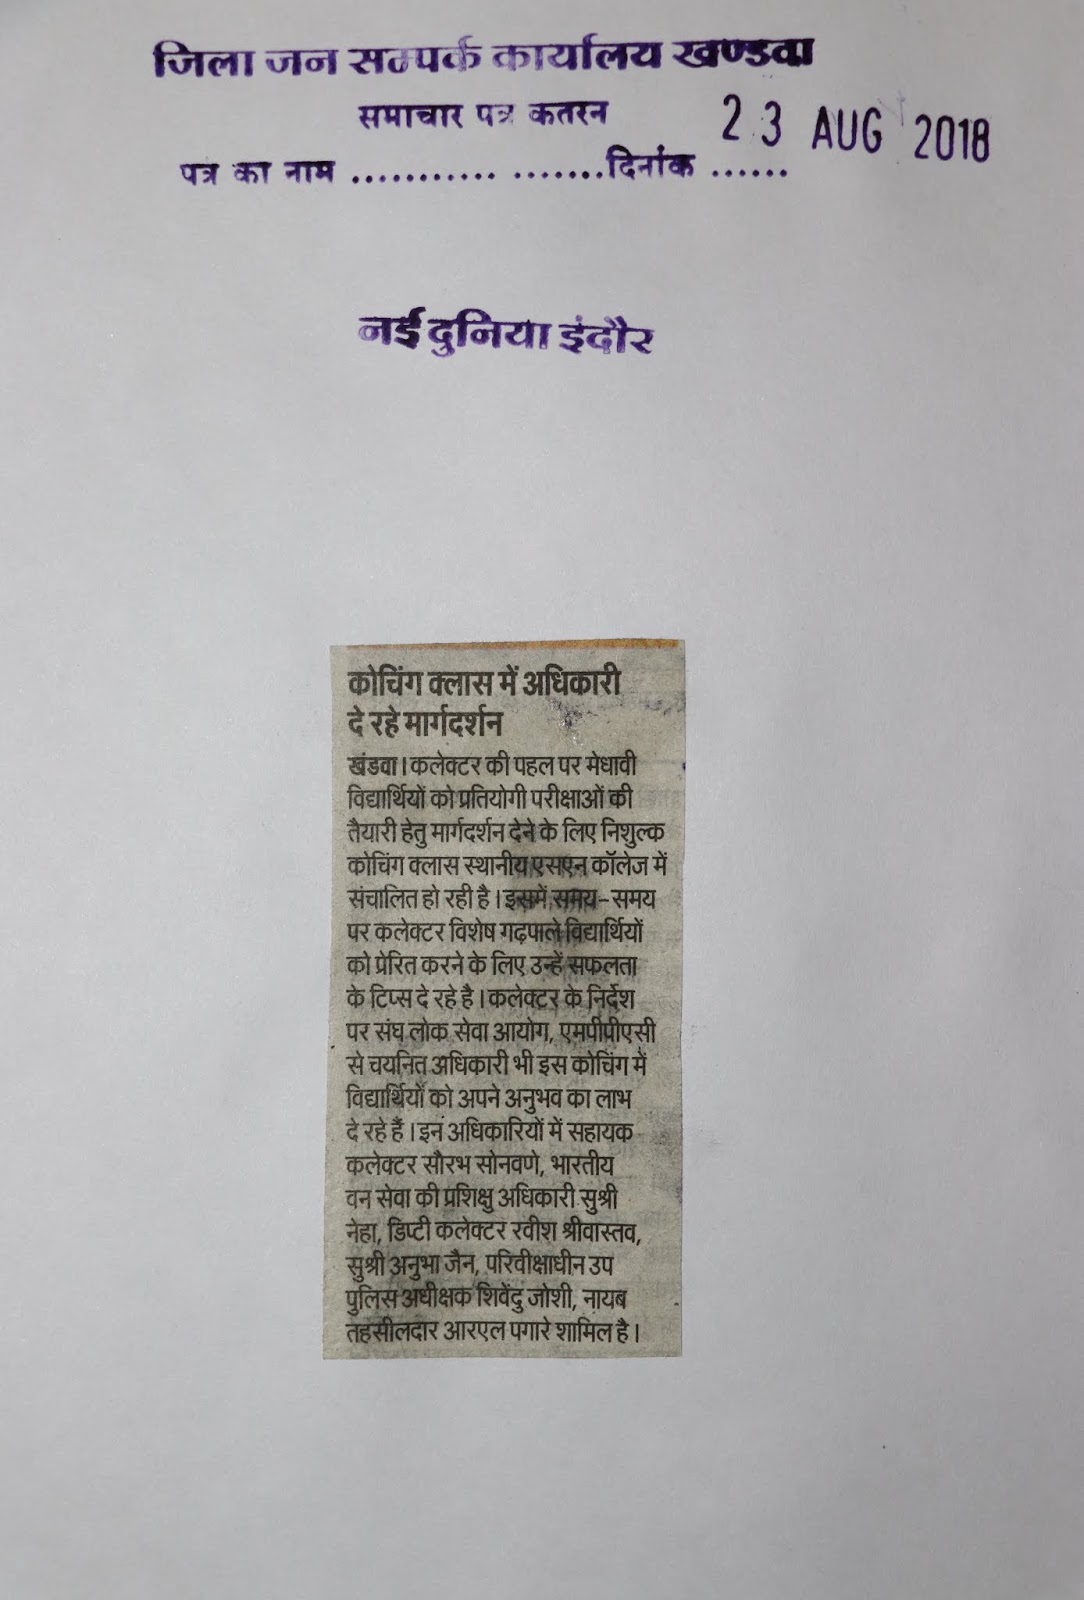 जिला जन सम्पर्क कार्यालय खण्डवा
समाचार पत्र कतरन
23 AUG 2018
पत्र का नाम ........... .......दिनांक ......
नई दुनिया इंदौर
कोचिंग क्लास में अधिकारी
दे रहे मार्गदर्शन
खंडवा। कलेक्टर की पहल पर मेधावी
विद्यार्थियों को प्रतियोगी परीक्षाओं की
तैयारी हेतु मार्गदर्शन देने के लिए निशुल्क
कोचिंग क्लास स्थानीय एसएन कॉलेज में
संचालित हो रही है। इसमें समय-समय
पर कलेक्टर विशेष गढ़पाले विद्यार्थियों
को प्रेरित करने के लिए उन्हें सफलता
के टिप्स दे रहे है। कलेक्टर के निर्देश
पर संघ लोक सेवा आयोग, एमपीपीएससी
से चयनित अधिकारी भी इस कोचिंग में
विद्यार्थियों को अपने अनुभव का लाभ
दे रहे हैं। इन अधिकारियों में सहायक
कलेक्टर सौरभ सोनवणे, भारतीय
वन सेवा की प्रशिक्षु अधिकारी सुश्री
नेहा, डिप्टी कलेक्टर रवीश श्रीवास्तव,
सुश्री अनुभा जैन, परिवीक्षाधीन उप
पुलिस अधीक्षक शिवेंदु जोशी, नायब
तहसीलदार आरएल पगारे शामिल है।